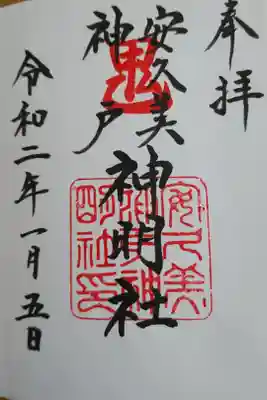 奉拝
安久美
神戸
神明社
鬼
安久美
神戸神
明社印
令和二年一月五日